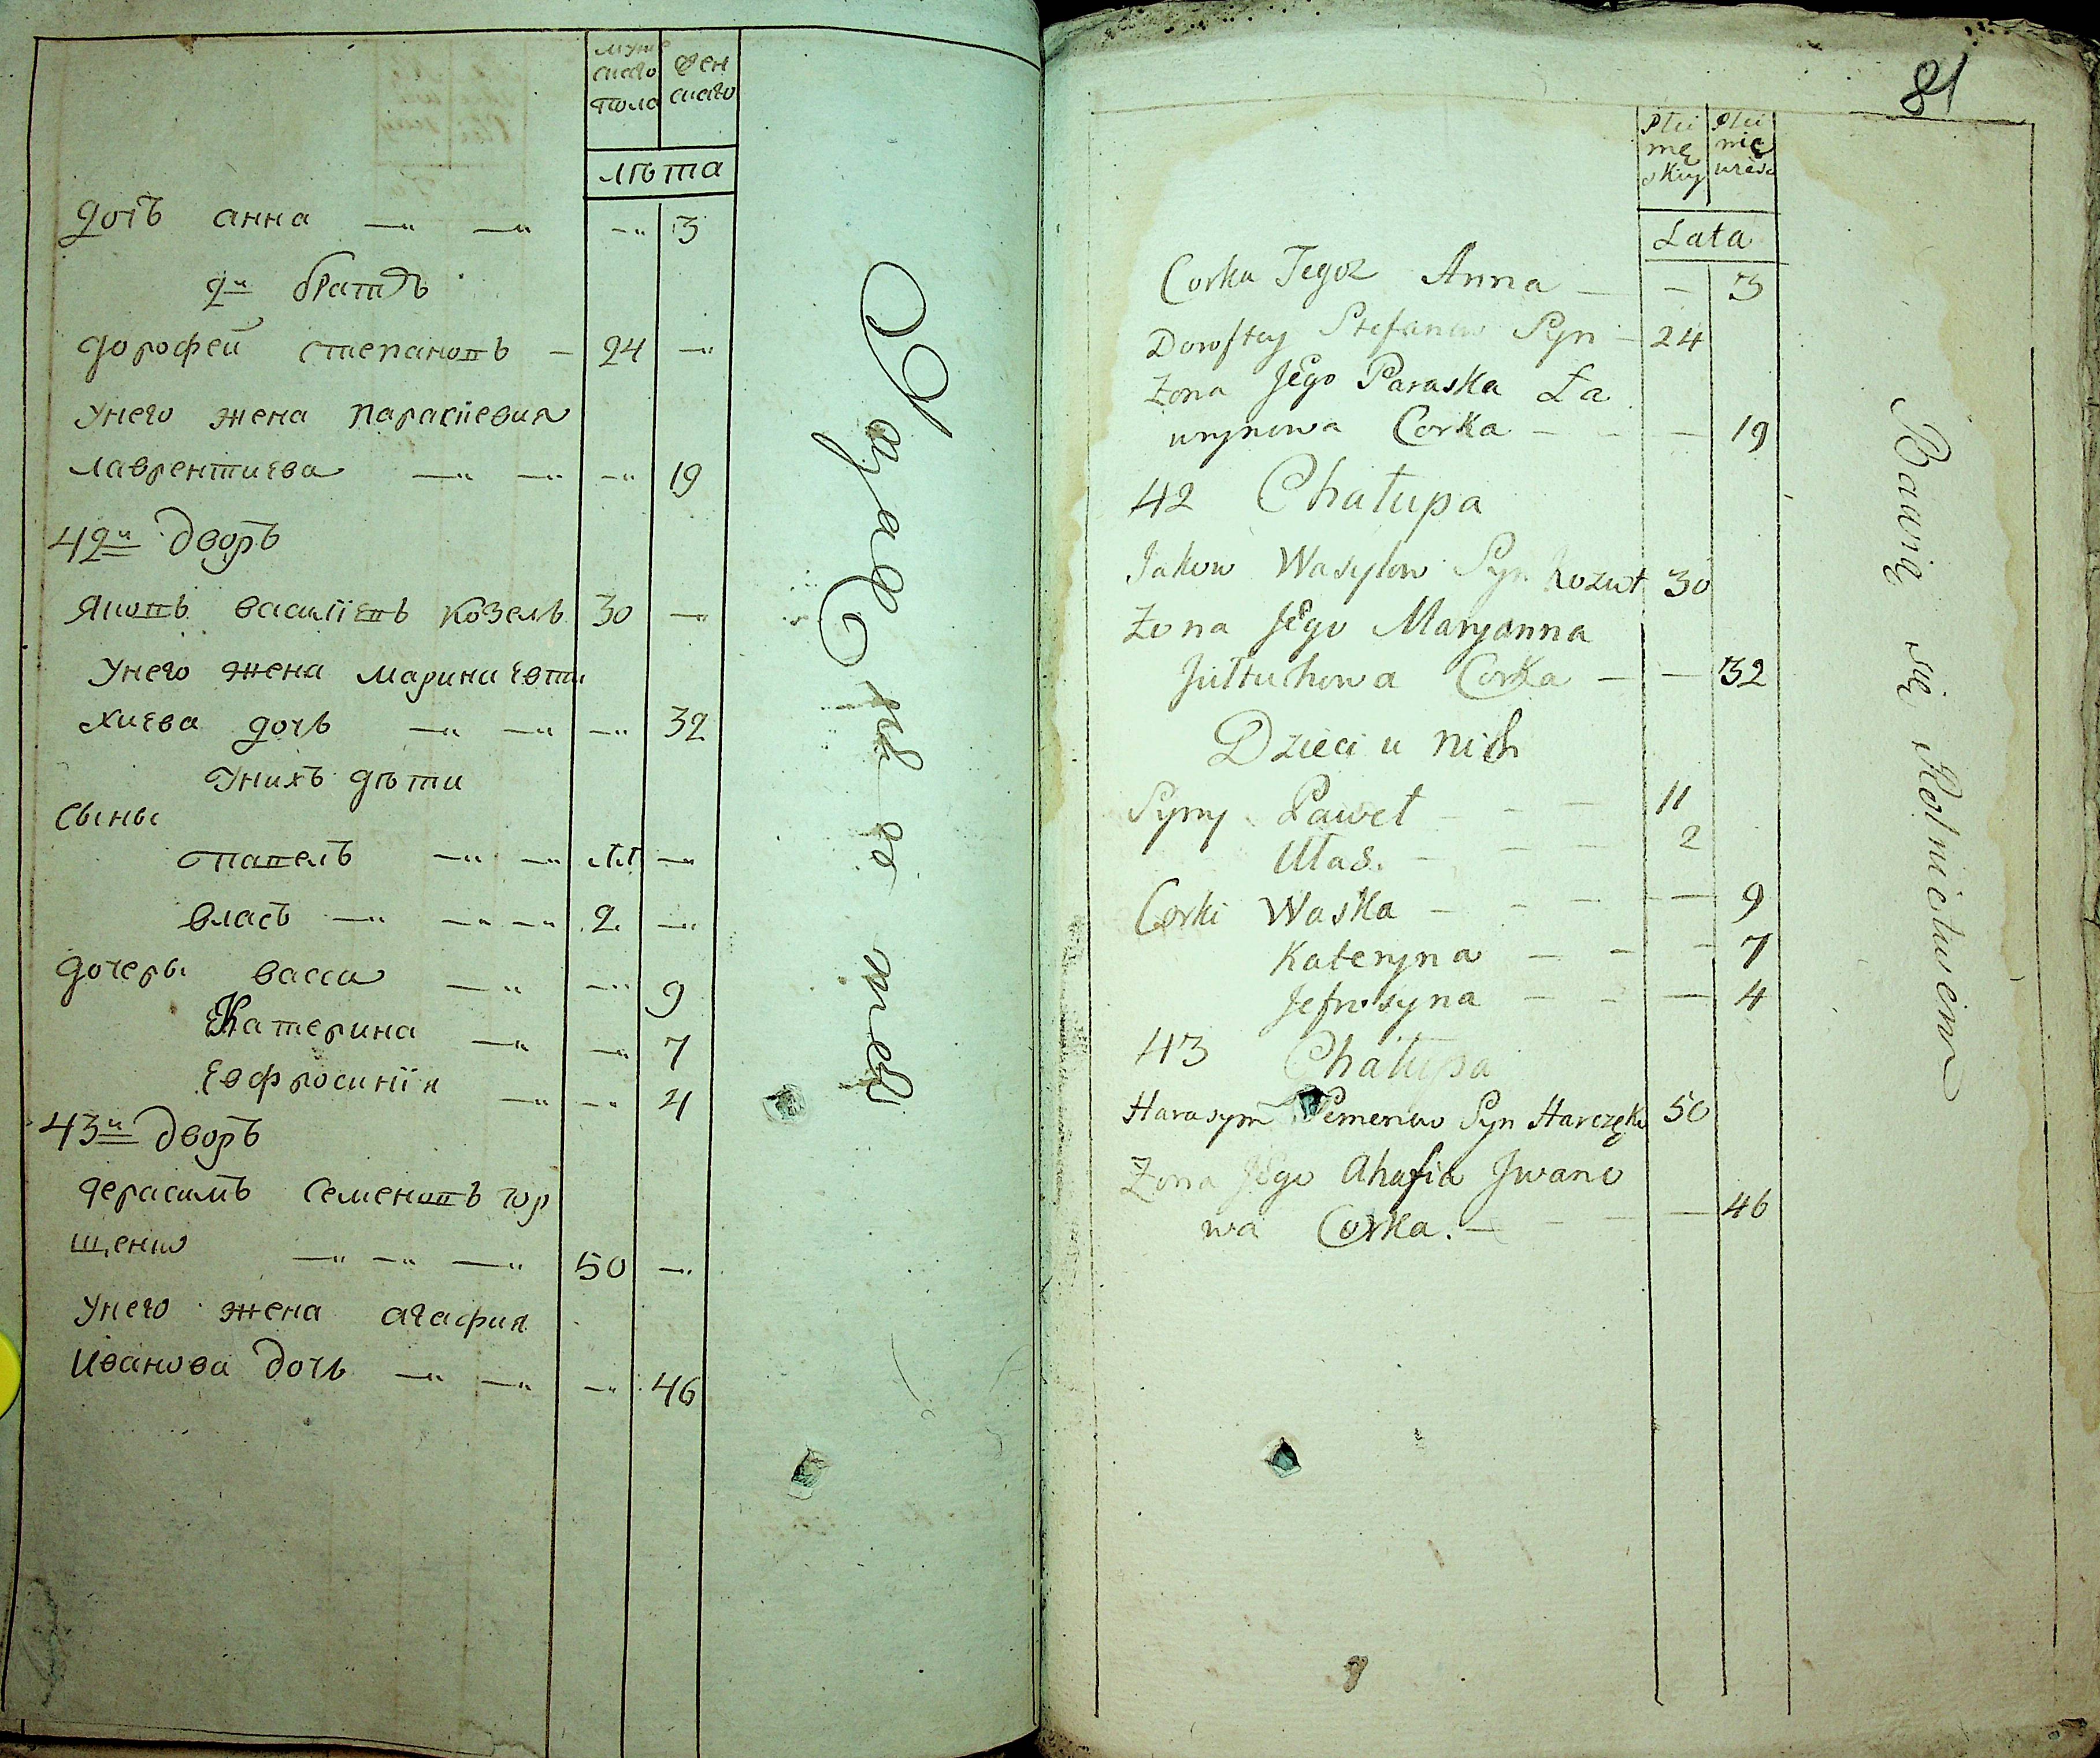 муже
скаго
пола
жен
скаго
лѣта
дочь анна — — — 3
2й братъ
дорофей степановъ — 24 —
унего жена параскевия
лаврентиева — — — 19
42й дворъ
яковъ василіевъ козелъ 30 —
унего жена марина евти
хиева дочь — — — 32
унихъ дѣти
сыны
павелъ — — 11 —
власъ — — — 2 —
дочеры васса — — 9
Екатерина — — 7
Евфросинія — — 4
43й дворъ
герасимъ семеновъ гор
щенко — — — 50 —
унего жена агафия
иванова дочь — — — 46
81
Płci
mę
skiy
Płci
nie
wieś
Lata
Corka Tegoż Anna — — 3
Dorofiey Stefanow Syn — 24
Żona Jego Paraska Ła
wrynowa Corka — — — 19
42 Chałupa
Jakow Wasylow Syn Kozwł 30
Żona Jego Maryanna
Jułtuchowa Corka — — 32
Dzieci u nich
Syny Paweł — — 11
Ułas. — — — 2
Corki Waska — — — — 9
Kateryna — — — 7
Jefrosyna — — — 4
43 Chałupa
Harasym Semenow Syn Harczęko 50
Żona Jego Ahafia Jwano
wa Corka. — — — — 46
Bawią się Rolnictwem